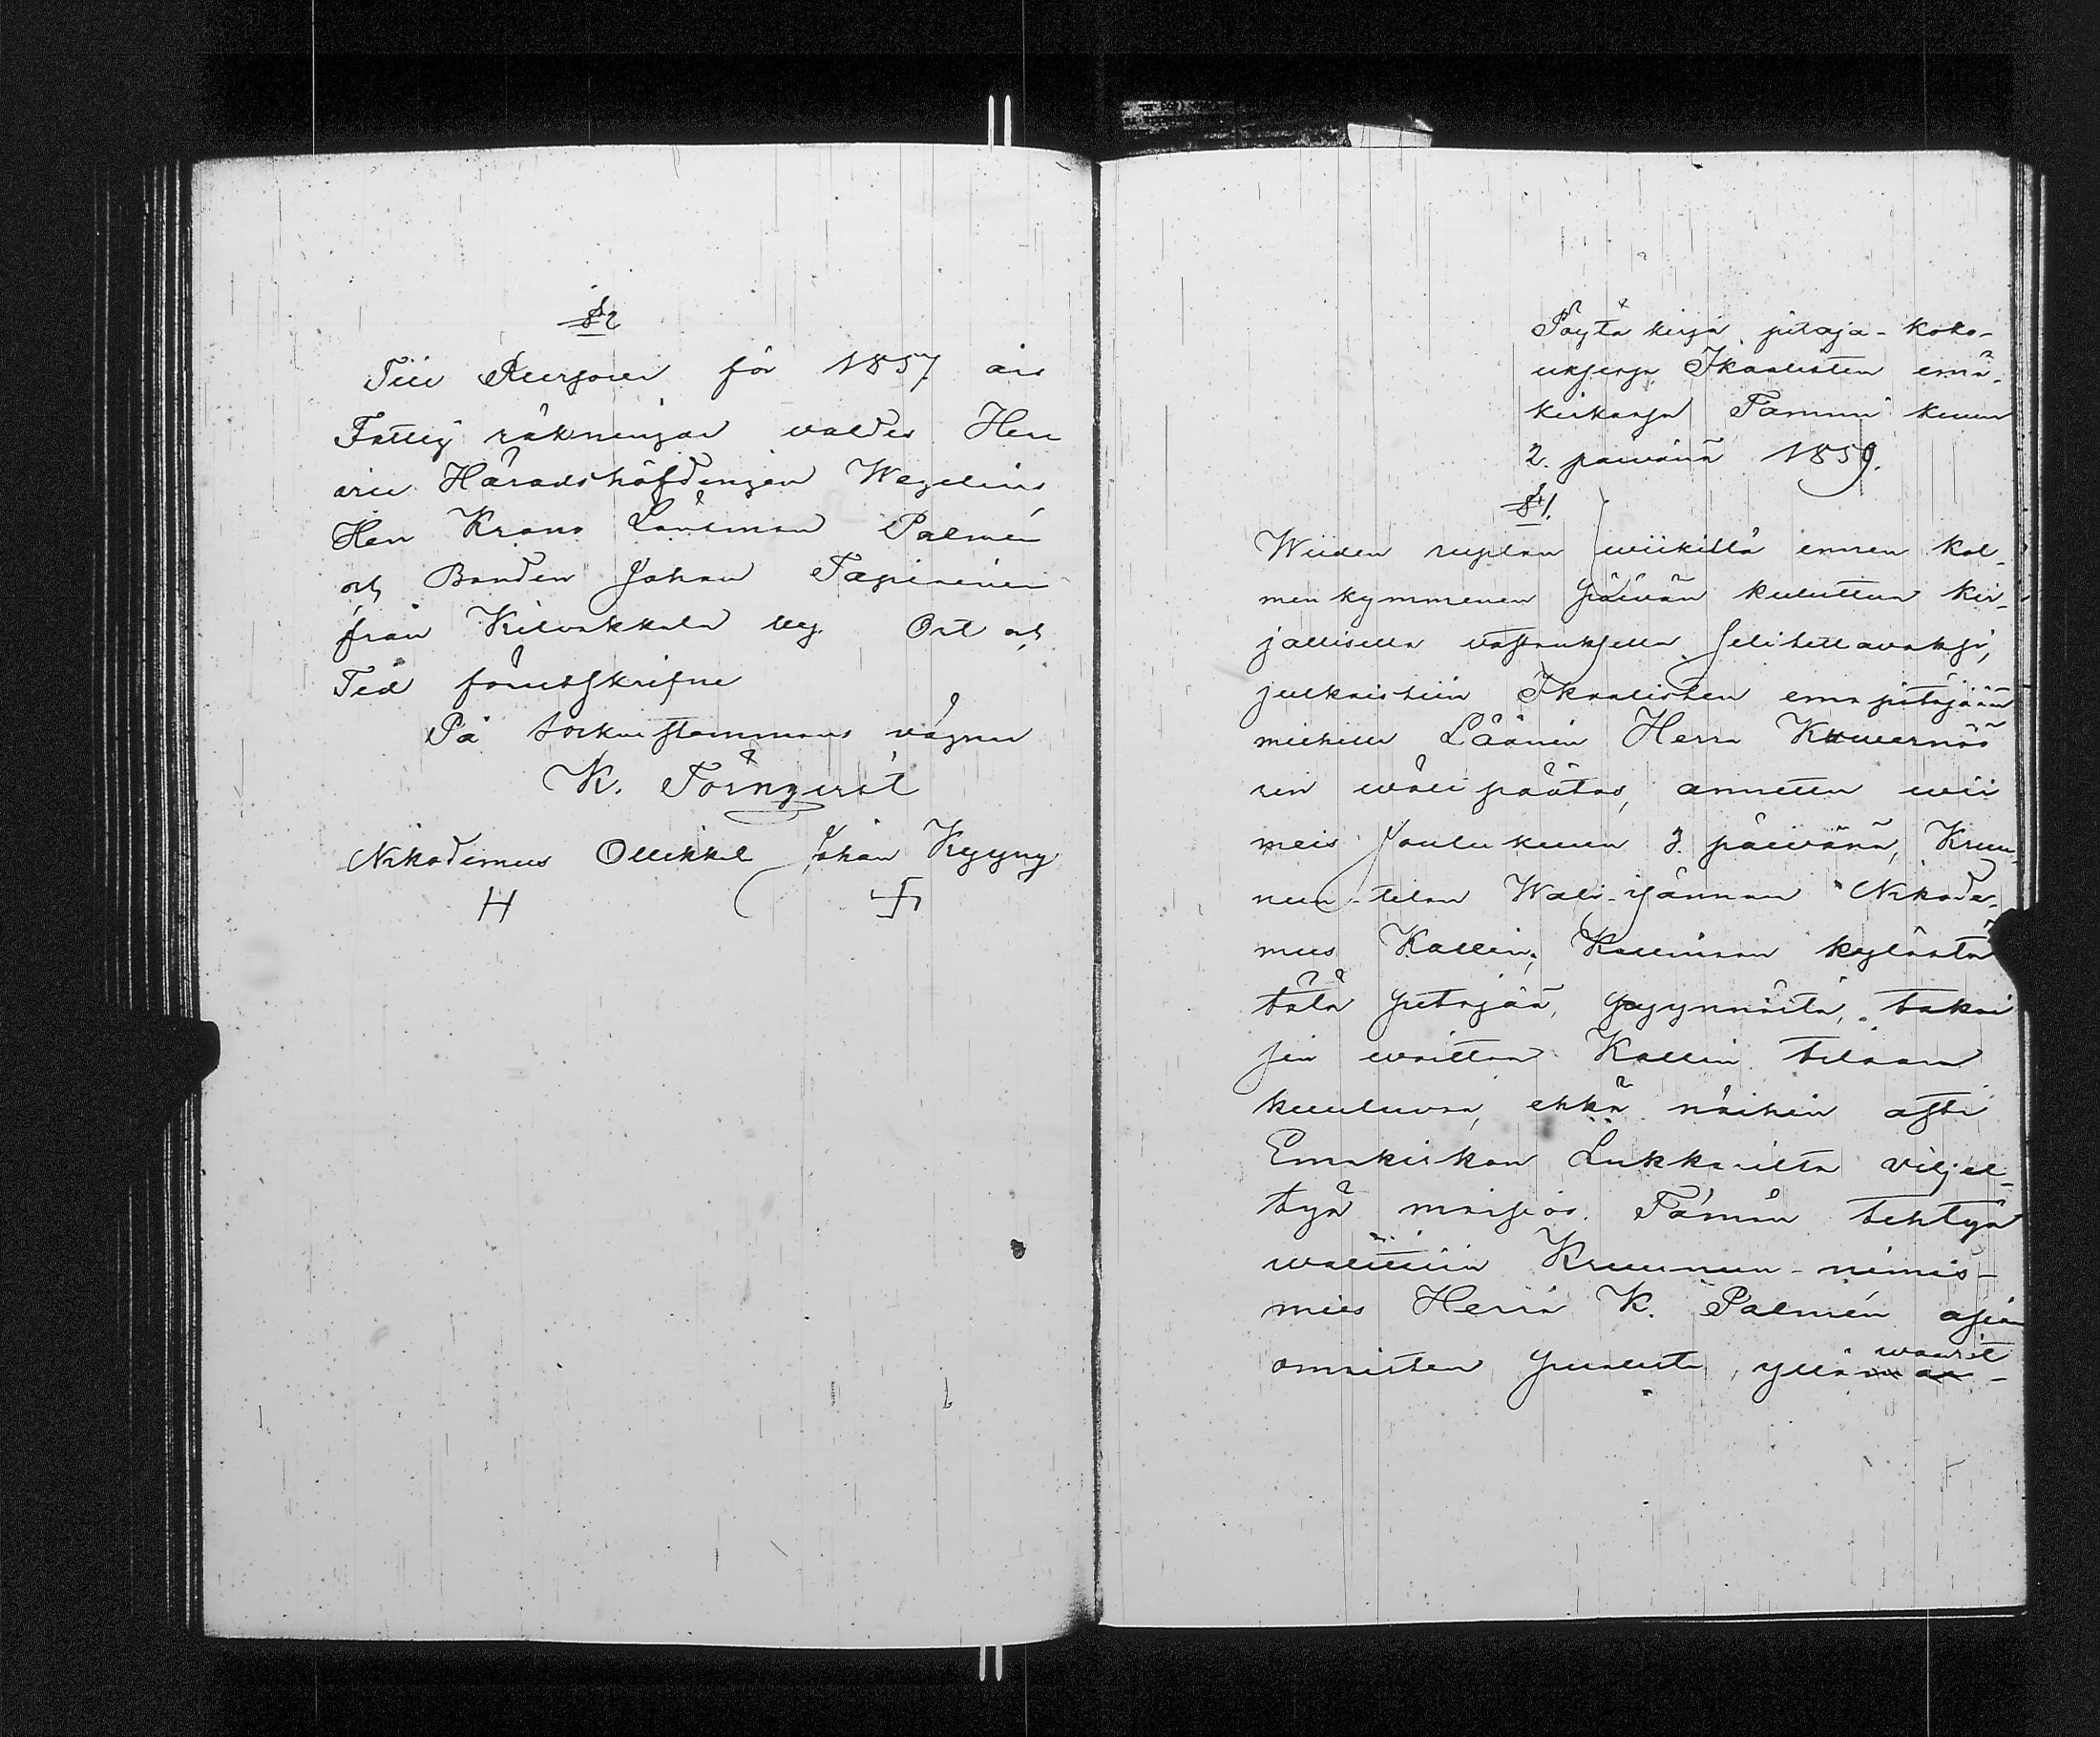 § 2
Till Revisorer för 1857 års
Fattig räkningar valdes Herr
vice Häradshöfdingen Wegelius
Herr Krono Länsman Palmén
och Bonden Johan Tapiainen
från Kilvakkala by. Ort och
Tid förutskrifne
På Sockenstämmans vägnar
K. Törnqvist
Nikodemus Ollikkal Johan Kyyny
Pöytä kirja pitäjä-koko-
uksessa Ikaalisten emä-
kirkossa Tammi kuun
2. päivänä 1859.
§ 1.
Wiiden ruplan wiikillä ennen kol-
men kymmenen päivän kuluttua kir-
jallisella vastauksella selitettäväksi,
julkaistiin Ikaalisten emäpitäjään
miehille Läänin Herra Kuvernöö
rin väli päätös, annettu vii
meis Joulu kuun 3. päivänä, Kruu-
nun-tilan Wäli-isännän Nikode-
mus Kallin, Kallinsan kylästä
tätä pitäjää, pyynnöstä, takai
sin voittaa Kallin tilaan
kuuluvaa, ehkä näihin asti
Emäkirkon Lukkarilta viljel-
tyä maisioa. Tämän tehtyä
valittiin Kruunun-nimis-
mies Herra K. Palmén asian
omaisten puolesta, yllä waarit